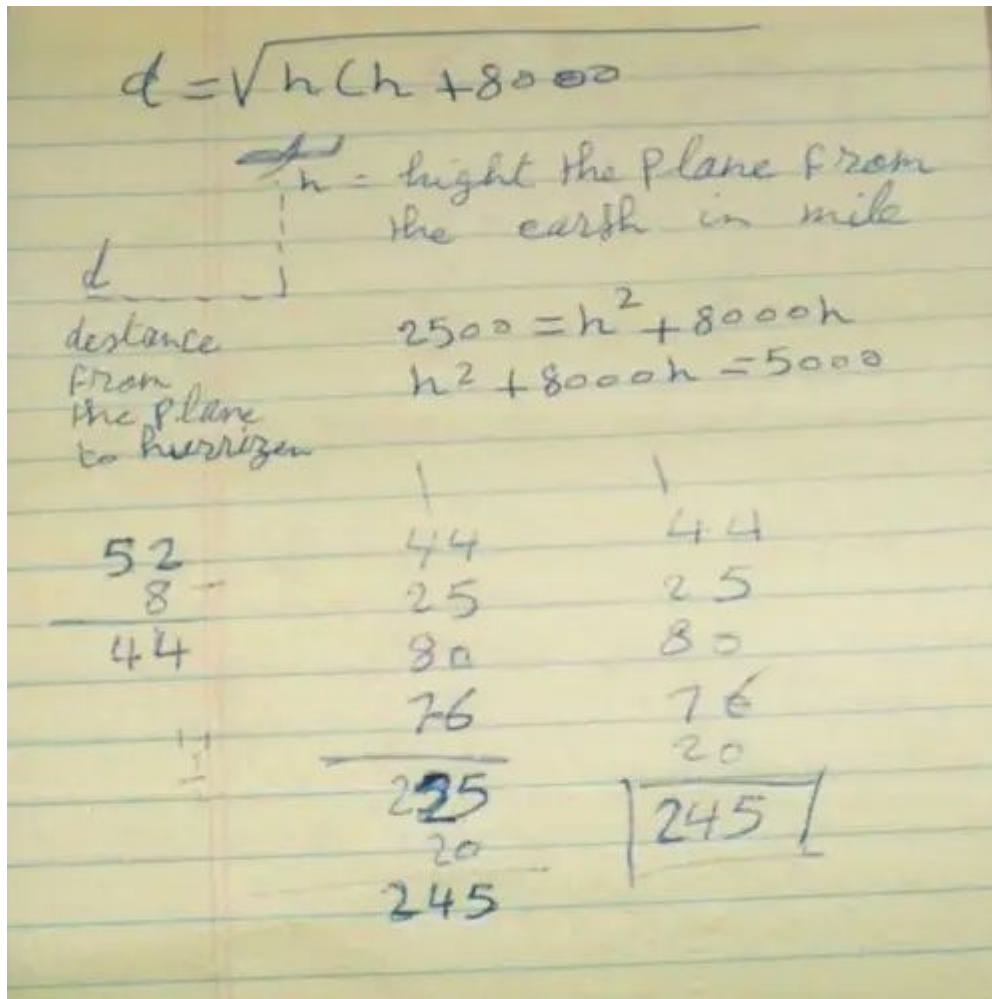 d = √h(h + 8000
h = hight the plane from
the earth in mile
d
destance
from
the plane
to hurrizen
2500 = h² + 8000h
h² + 8000h = 5000
52
8 -
44
44
25
80
76
235
20
245
44
25
80
76
20
245